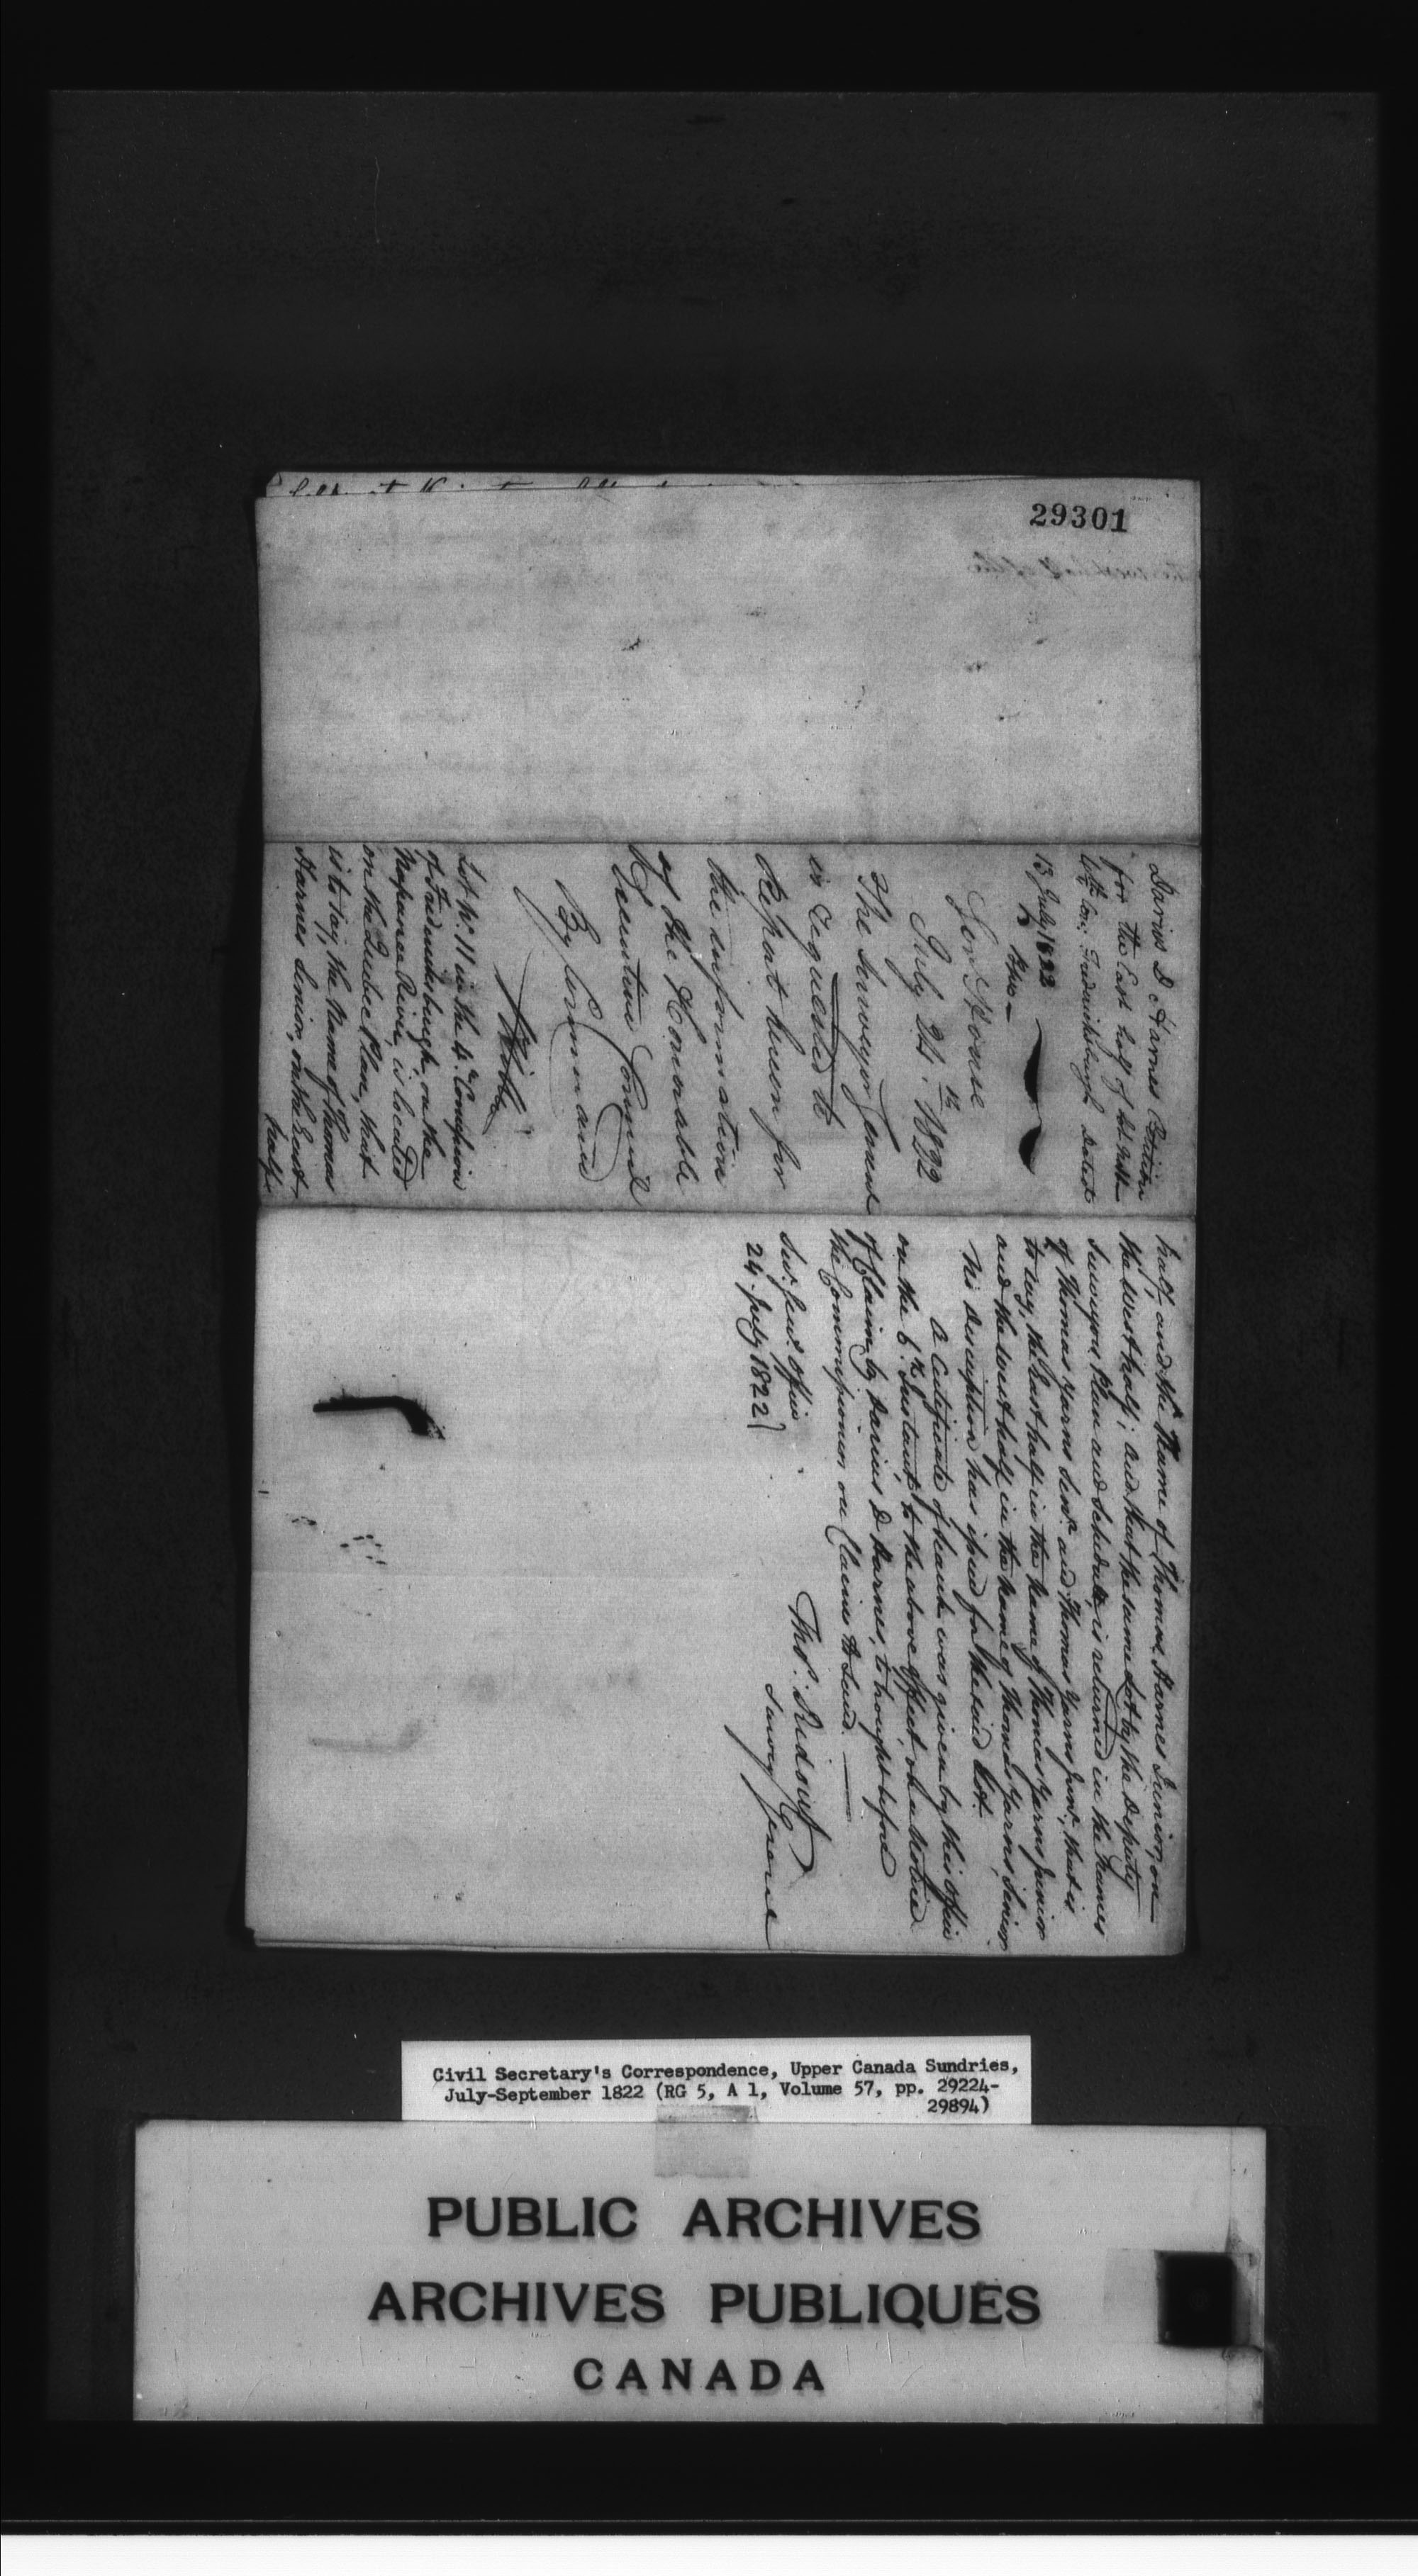 29301
Darius D. Harnes Petition
for the East half of Lot No 11
4th Con: Fredericksburgh Dated
13 July 1822
Gov. House
July 24.th 1822
The Surveyor General
is requested to
Report hereon for
the information
of the Honorable
Executive Council
By Command
Lot No. 11 in the 4.th Concession
of Fredericksburgh, on the
Napanee River, is located
on the Quebec Plan, that
is to say, the Name of Thomas
Harnes Senior, on the East
half
half, and the Name of Thomas Harnes Junior, on
the West half; and that the same Lot by the Deputy
Surveyors Plan and Schedule, is returned in the Names
of Thomas Yarns Senr. and Thomas Yarns Junr, that is
to say, the East half in the Name of Thomas Yarns Junior
and the West half in the Name of Thomas Yarns, Senior
No description has issued for the said Lot.
A Certificate of search was given by this office
on the 6.th Instant to the above effect, on a Notice
of Claim by Darius D Harnes, to brought before
the Commissioners on Claims to Land.
Sur. Genl. Office
24. July 1822
Thos. Ridout
Survey General
Civil Secretary's Correspondence, Upper Canada Sundries,
July-September 1822 (RG 5, A 1, Volume 57, pp. 29224-
29894)
PUBLIC ARCHIVES
ARCHIVES PUBLIQUES
CANADA